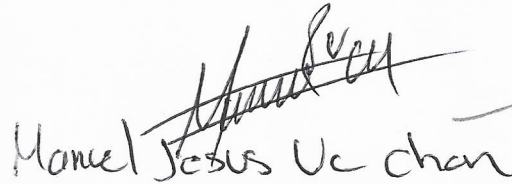 Manuel Jesus Uc chan